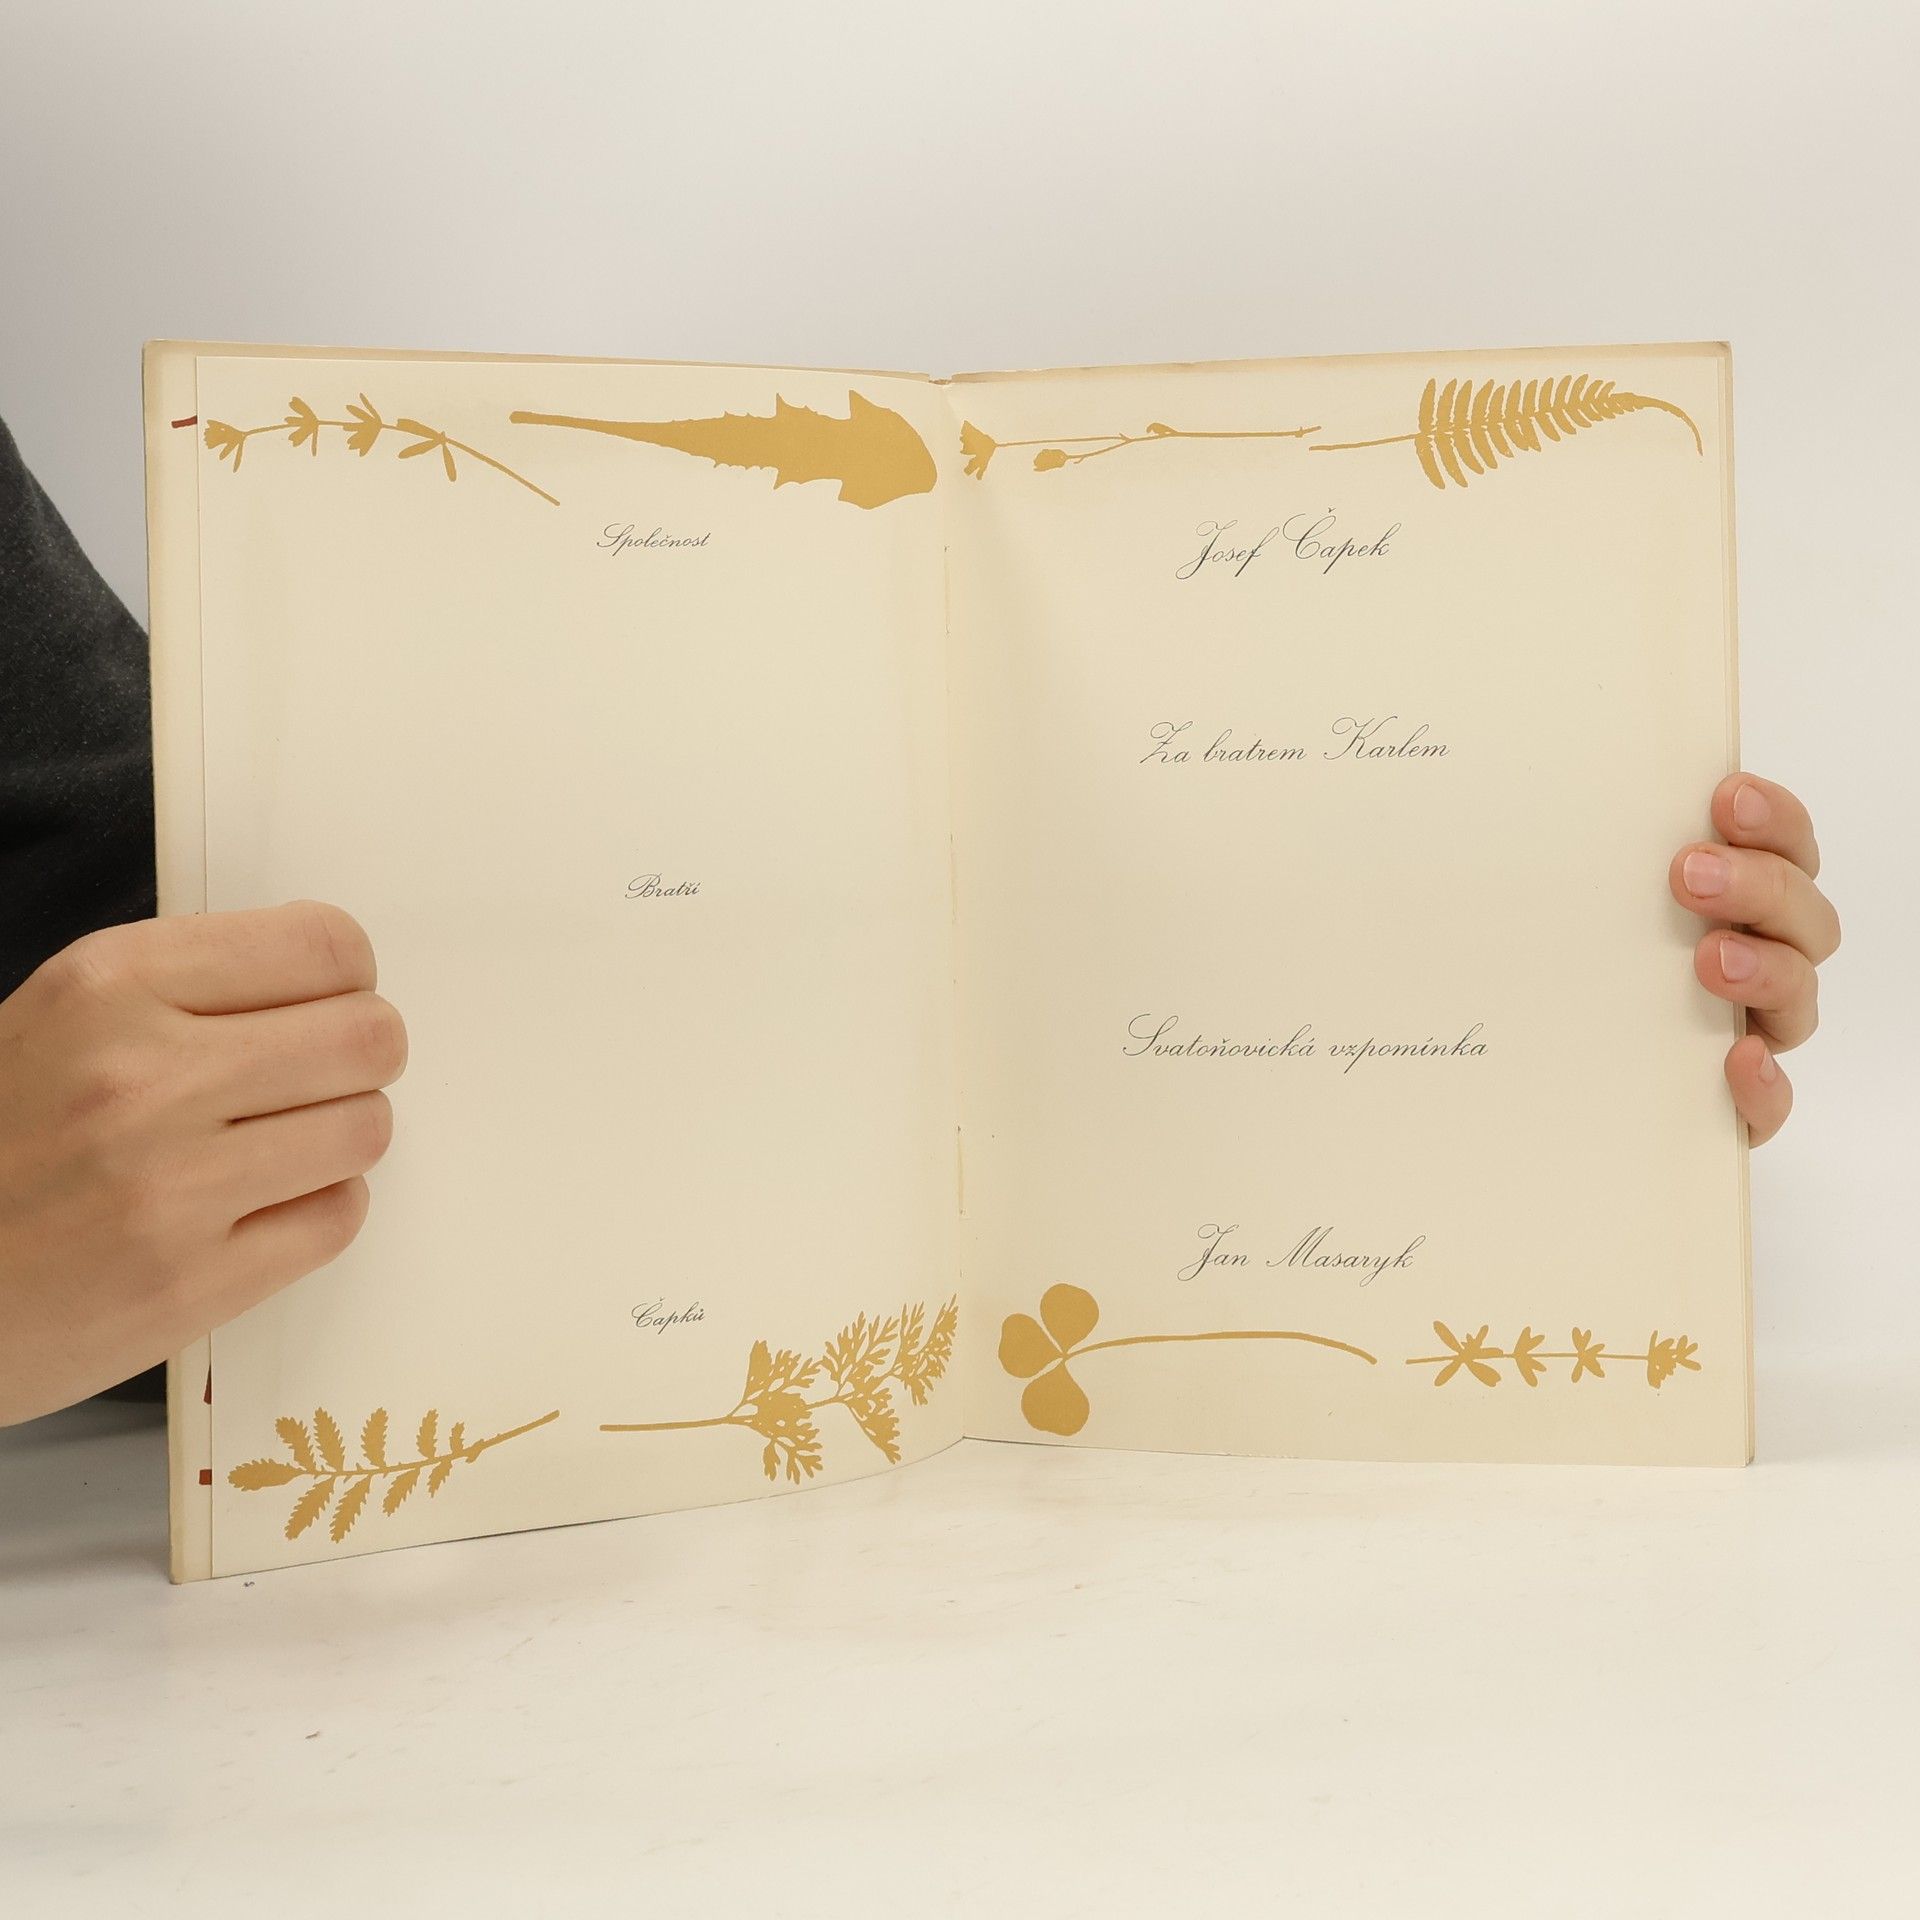 Společnost
Bratří
Čapků
Josef Čapek
Za bratrem Karlem
Svatoňovická vzpomínka
Jan Masaryk